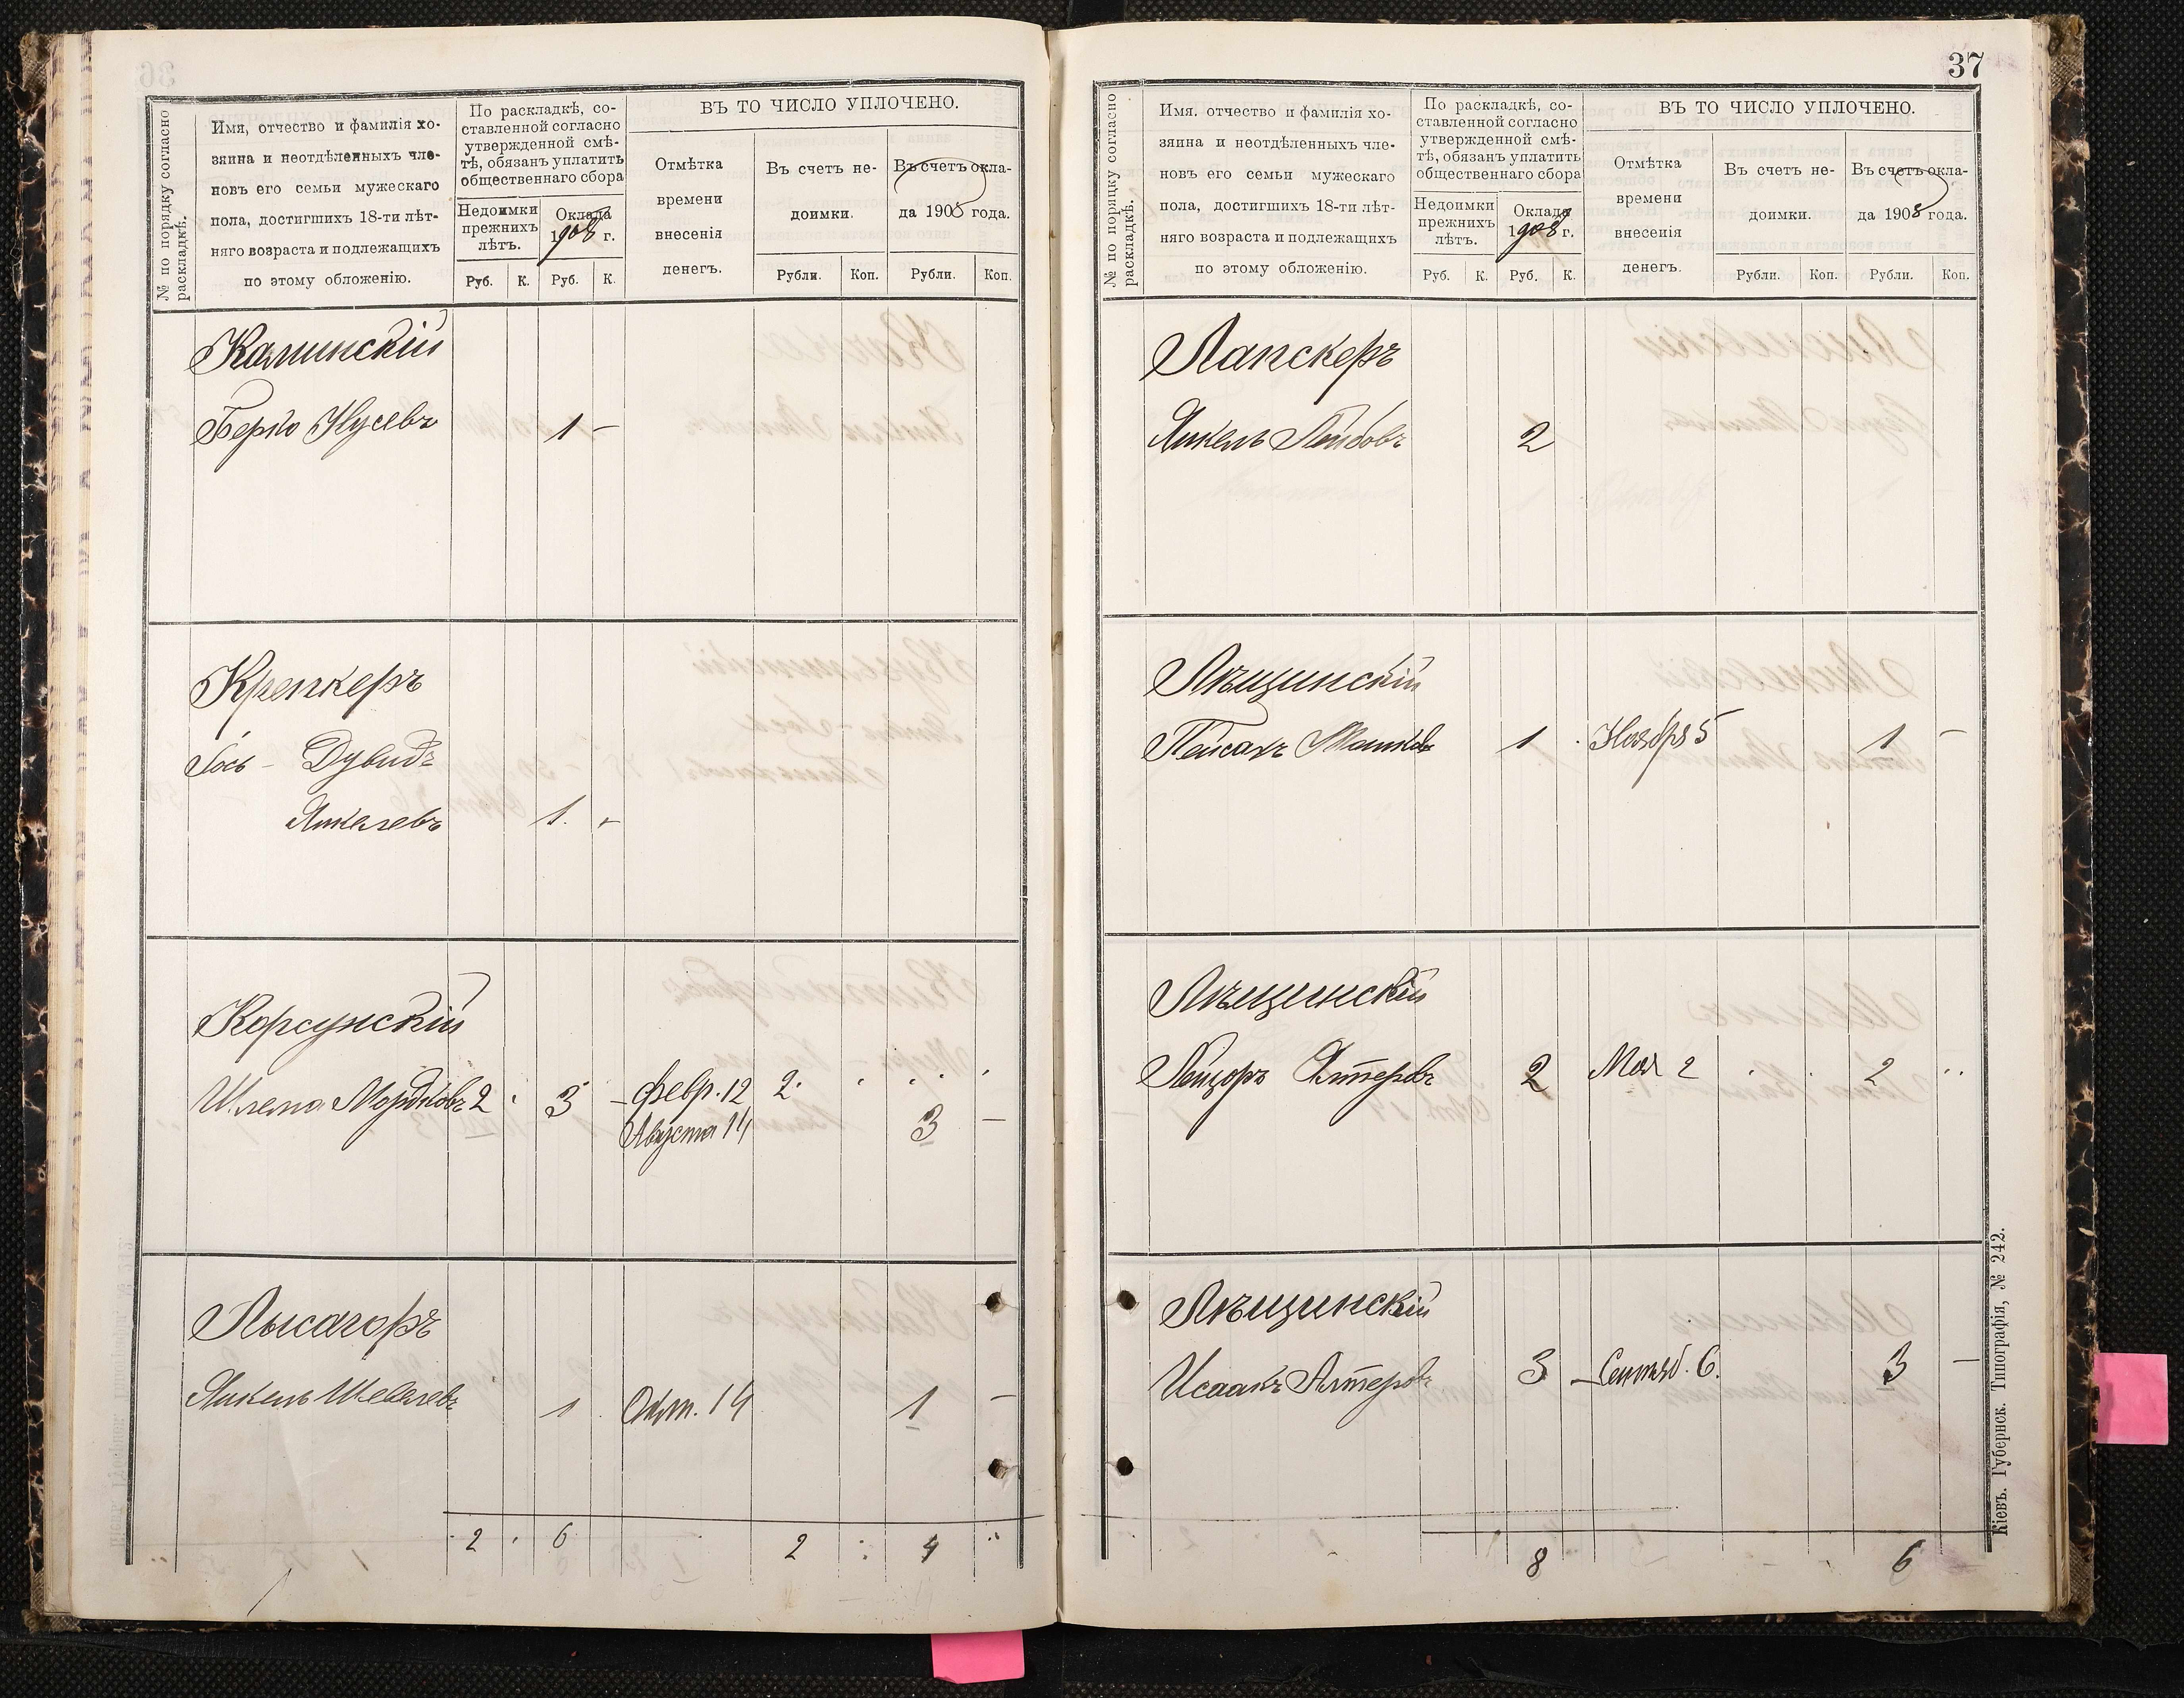 № по порядку согласно
раскладкѣ.
Имя, отчество и фамилія хо-
зяина и неотдѣленныхъ чле-
новъ его семьи мужескаго
пола, достигшихъ 18-ти лѣт-
няго возраста и подлежащихъ
по этому обложенію.
По раскладкѣ, со-
ставленной согласно
утвержденной смѣ-
тѣ, обязанъ уплатить
общественнаго сбора
Недоимки
прежнихъ
лѣтъ.
Оклада
1908 г.
Руб. К. Руб. К.
ВЪ ТО ЧИСЛО УПЛОЧЕНО.
Отмѣтка
времени
внесенія
денегъ.
Въ счетъ не-
доимки.
Въ счетъ окла-
да 1908 года.
Рубли. Коп. Рубли. Коп.
Калинскій
Берко Нусевъ 1 —
Крепкеръ
Іось - Дувидъ
Янкелевъ 1. -
Корсунскій
Шлема Мордковъ 2 . 3 - февр. 12 2. . . . .
Августа 14 3 —
Лысагоръ
Янкель Шевелевъ 1 . Окт. 14 1 —
2 . 6 . 2 : 4 ..
37
№ по порядку согласно
раскладкѣ.
Имя, отчество и фамилія хо-
зяина и неотдѣленныхъ чле-
новъ его семьи мужескаго
пола, достигшихъ 18-ти лѣт-
няго возраста и подлежащихъ
по этому обложенію.
По раскладкѣ, со-
ставленной согласно
утвержденной смѣ-
тѣ, обязанъ уплатить
общественнаго сбора
Недоимки
прежнихъ
лѣтъ.
Оклада
1908 г.
Руб. К. Руб. К.
ВЪ ТО ЧИСЛО УПЛОЧЕНО.
Отмѣтка
времени
внесенія
денегъ.
Въ счетъ не-
доимки.
Въ счетъ окла-
да 1908 года.
Рубли. Коп. Рубли. Коп.
Лапскеръ
Янкель Лейбовъ 2
Лѣщинскій
Пейсахъ Мошковъ 1 . Ноября 5 1 —
Лѣщинскій
Лейзоръ Алтеровъ 2 Мая 2 . . 2 ..
Лѣщинскій
Исаакъ Алтеровъ 3 - Сентяб. 6. 3 —
8 6
Кіевъ. Губернск. Типографія, № 242.